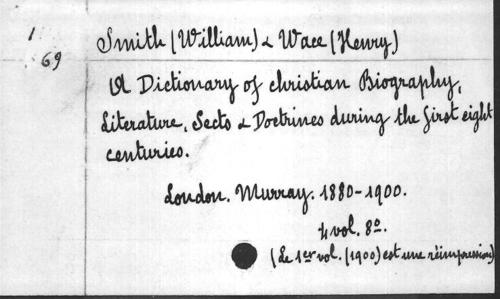 1
69
Smith (William) & Wace (Henry)
A Dictionary of christian Biography,
Literature, Sects & Doctrines during the first eight
centuries.
London. Murray. 1880-1900.
4 vol. 8º.
(Le 1er vol. (1900) est une réimpression)